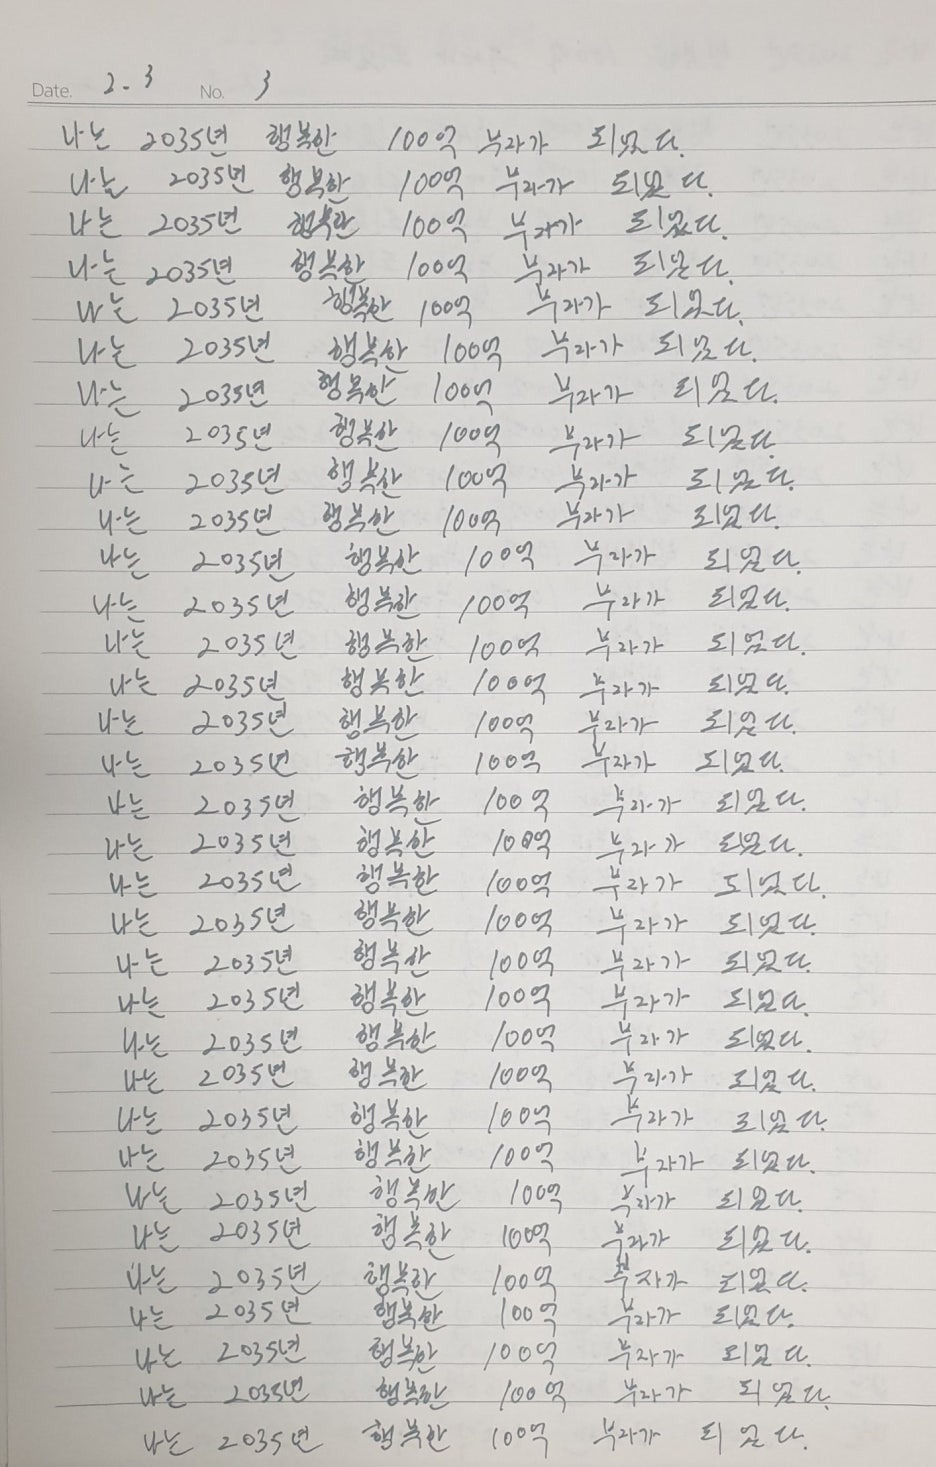 Date. 2.3 No. 3
나는 2035년 행복한 100억 부자가 되었다.
나는 2035년 행복한 100억 부자가 되었다.
나는 2035년 행복한 100억 부자가 되었다.
나는 2035년 행복한 100억 부자가 되었다.
나는 2035년 행복한 100억 부자가 되었다.
나는 2035년 행복한 100억 부자가 되었다.
나는 2035년 행복한 100억 부자가 되었다.
나는 2035년 행복한 100억 부자가 되었다.
나는 2035년 행복한 100억 부자가 되었다.
나는 2035년 행복한 100억 부자가 되었다.
나는 2035년 행복한 100억 부자가 되었다.
나는 2035년 행복한 100억 부자가 되었다.
나는 2035년 행복한 100억 부자가 되었다.
나는 2035년 행복한 100억 부자가 되었다.
나는 2035년 행복한 100억 부자가 되었다.
나는 2035년 행복한 100억 부자가 되었다.
나는 2035년 행복한 100억 부자가 되었다.
나는 2035년 행복한 100억 부자가 되었다.
나는 2035년 행복한 100억 부자가 되었다.
나는 2035년 행복한 100억 부자가 되었다.
나는 2035년 행복한 100억 부자가 되었다.
나는 2035년 행복한 100억 부자가 되었다.
나는 2035년 행복한 100억 부자가 되었다.
나는 2035년 행복한 100억 부자가 되었다.
나는 2035년 행복한 100억 부자가 되었다.
나는 2035년 행복한 100억 부자가 되었다.
나는 2035년 행복한 100억 부자가 되었다.
나는 2035년 행복한 100억 부자가 되었다.
나는 2035년 행복한 100억 부자가 되었다.
나는 2035년 행복한 100억 부자가 되었다.
나는 2035년 행복한 100억 부자가 되었다.
나는 2035년 행복한 100억 부자가 되었다.
나는 2035년 행복한 100억 부자가 되었다.